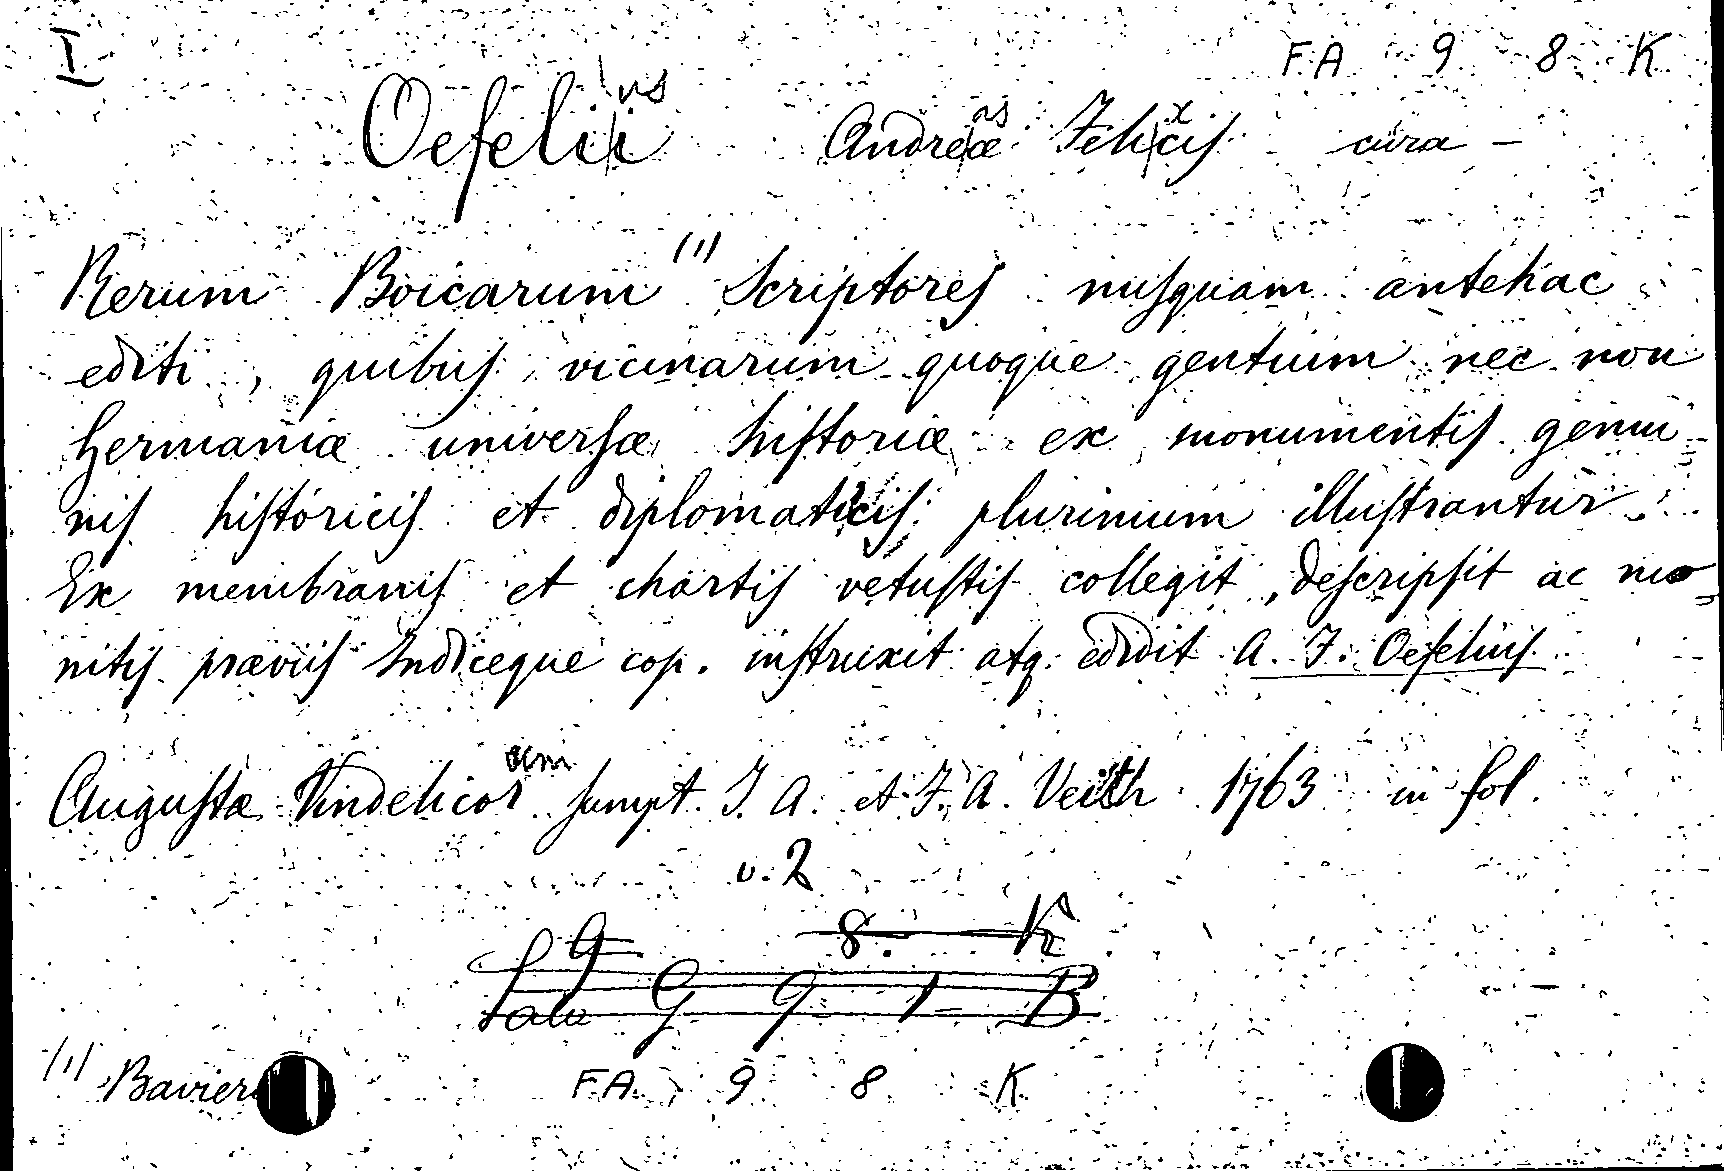 I FA 9 8 K
Oefelii us Andreæ as Felicis x cura -
Rerum Boicarum (1) Scriptores nusquam antehac
editi, quibus vicinarum quoque gentium nec non
Germaniæ universæ historiæ ex monumentis genui-
nis historicis et diplomaticis plurimum illustrantur.
Ex membranis et chartis vetustis collegit, descripsit ac mo-
nitis præviis Indiceque cop. instruxit atq. edidit A. F. Oefelius.
Augustæ Vindelicor um sumpt. I. A. et F. A. Veith 1763 in fol.
v. 2
9 8. K
Sala G 9 1 B
(1) Bavier
FA 9 8 K